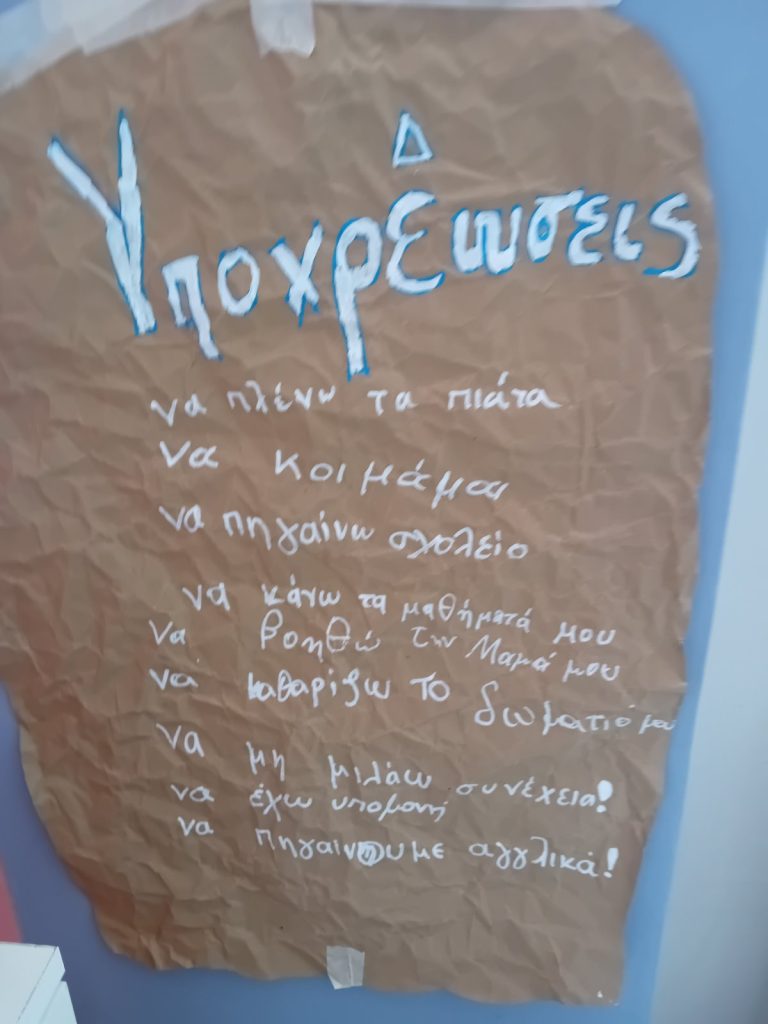 Υποχρέωσεις
να πλένω τα πιάτα
να κοιμάμαι
να πηγαίνω σχολείο
να κάνω τα μαθήματά μου
να βοηθώ την Μαμά μου
να καθαρίζω το δωματιό μου
να μη μιλάω συνέχεια!
να έχω υπομονή
να πηγαίνουμε αγγλικά!